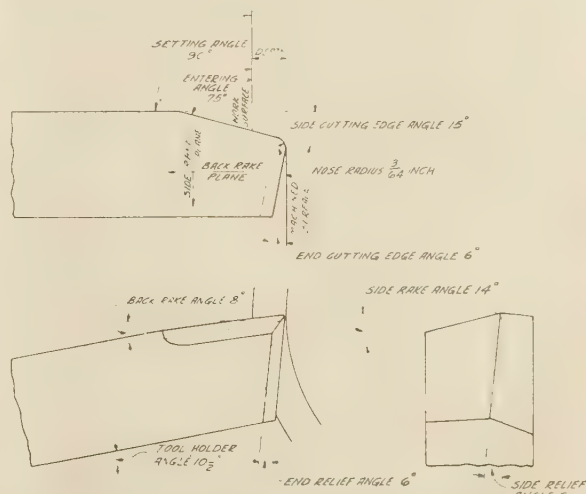 SETTING ANGLE
90°
ENTERING
ANGLE
75°
WORK
SURFACE
SIDE CUTTING EDGE ANGLE 15°
SIDE RAKE
PLANE
BACK RAKE
PLANE
NOSE RADIUS 3/64 INCH
MACHINED
SURFACE
END CUTTING EDGE ANGLE 6°
BACK RAKE ANGLE 8°
SIDE RAKE ANGLE 14°
TOOL HOLDER
ANGLE 10½°
END RELIEF ANGLE 6°
SIDE RELIEF